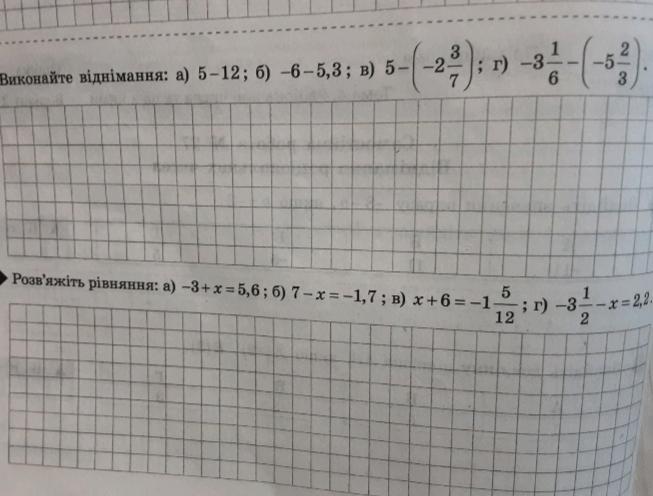 Виконайте віднімання: а) 5−12; б) −6−5,3; в) 5−(−2 3/7); г) −3 1/6−(−5 2/3).
Розв'яжіть рівняння: а) −3+x=5,6; б) 7−x=−1,7; в) x+6=−1 5/12; г) −3 1/2−x=2,2.